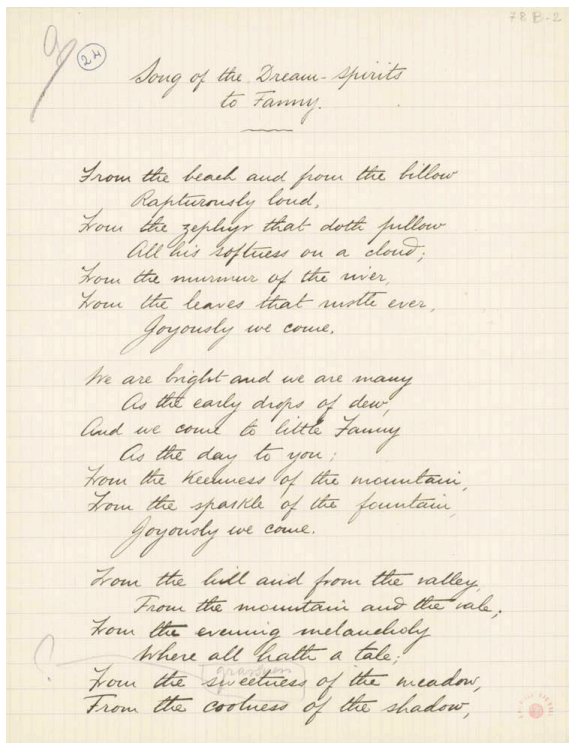 78 B-2
24
Song of the Dream-spirits
to Fanny.
From the beach and from the billow
Rapturously loud,
From the zephyr that doth pillow
All his softness on a cloud;
From the murmur of the river,
From the leaves that rustle ever,
Joyously we come.
We are bright and we are many
As the early drops of dew,
And we come to little Fanny
As the day to you;
From the keenness of the mountain,
From the sparkle of the fountain,
Joyously we come.
From the hill and from the valley,
From the mountain and the vale;
From the evening melancholy
Where all hath a tale;
From the sweetness of the meadow,
From the coolness of the shadow,